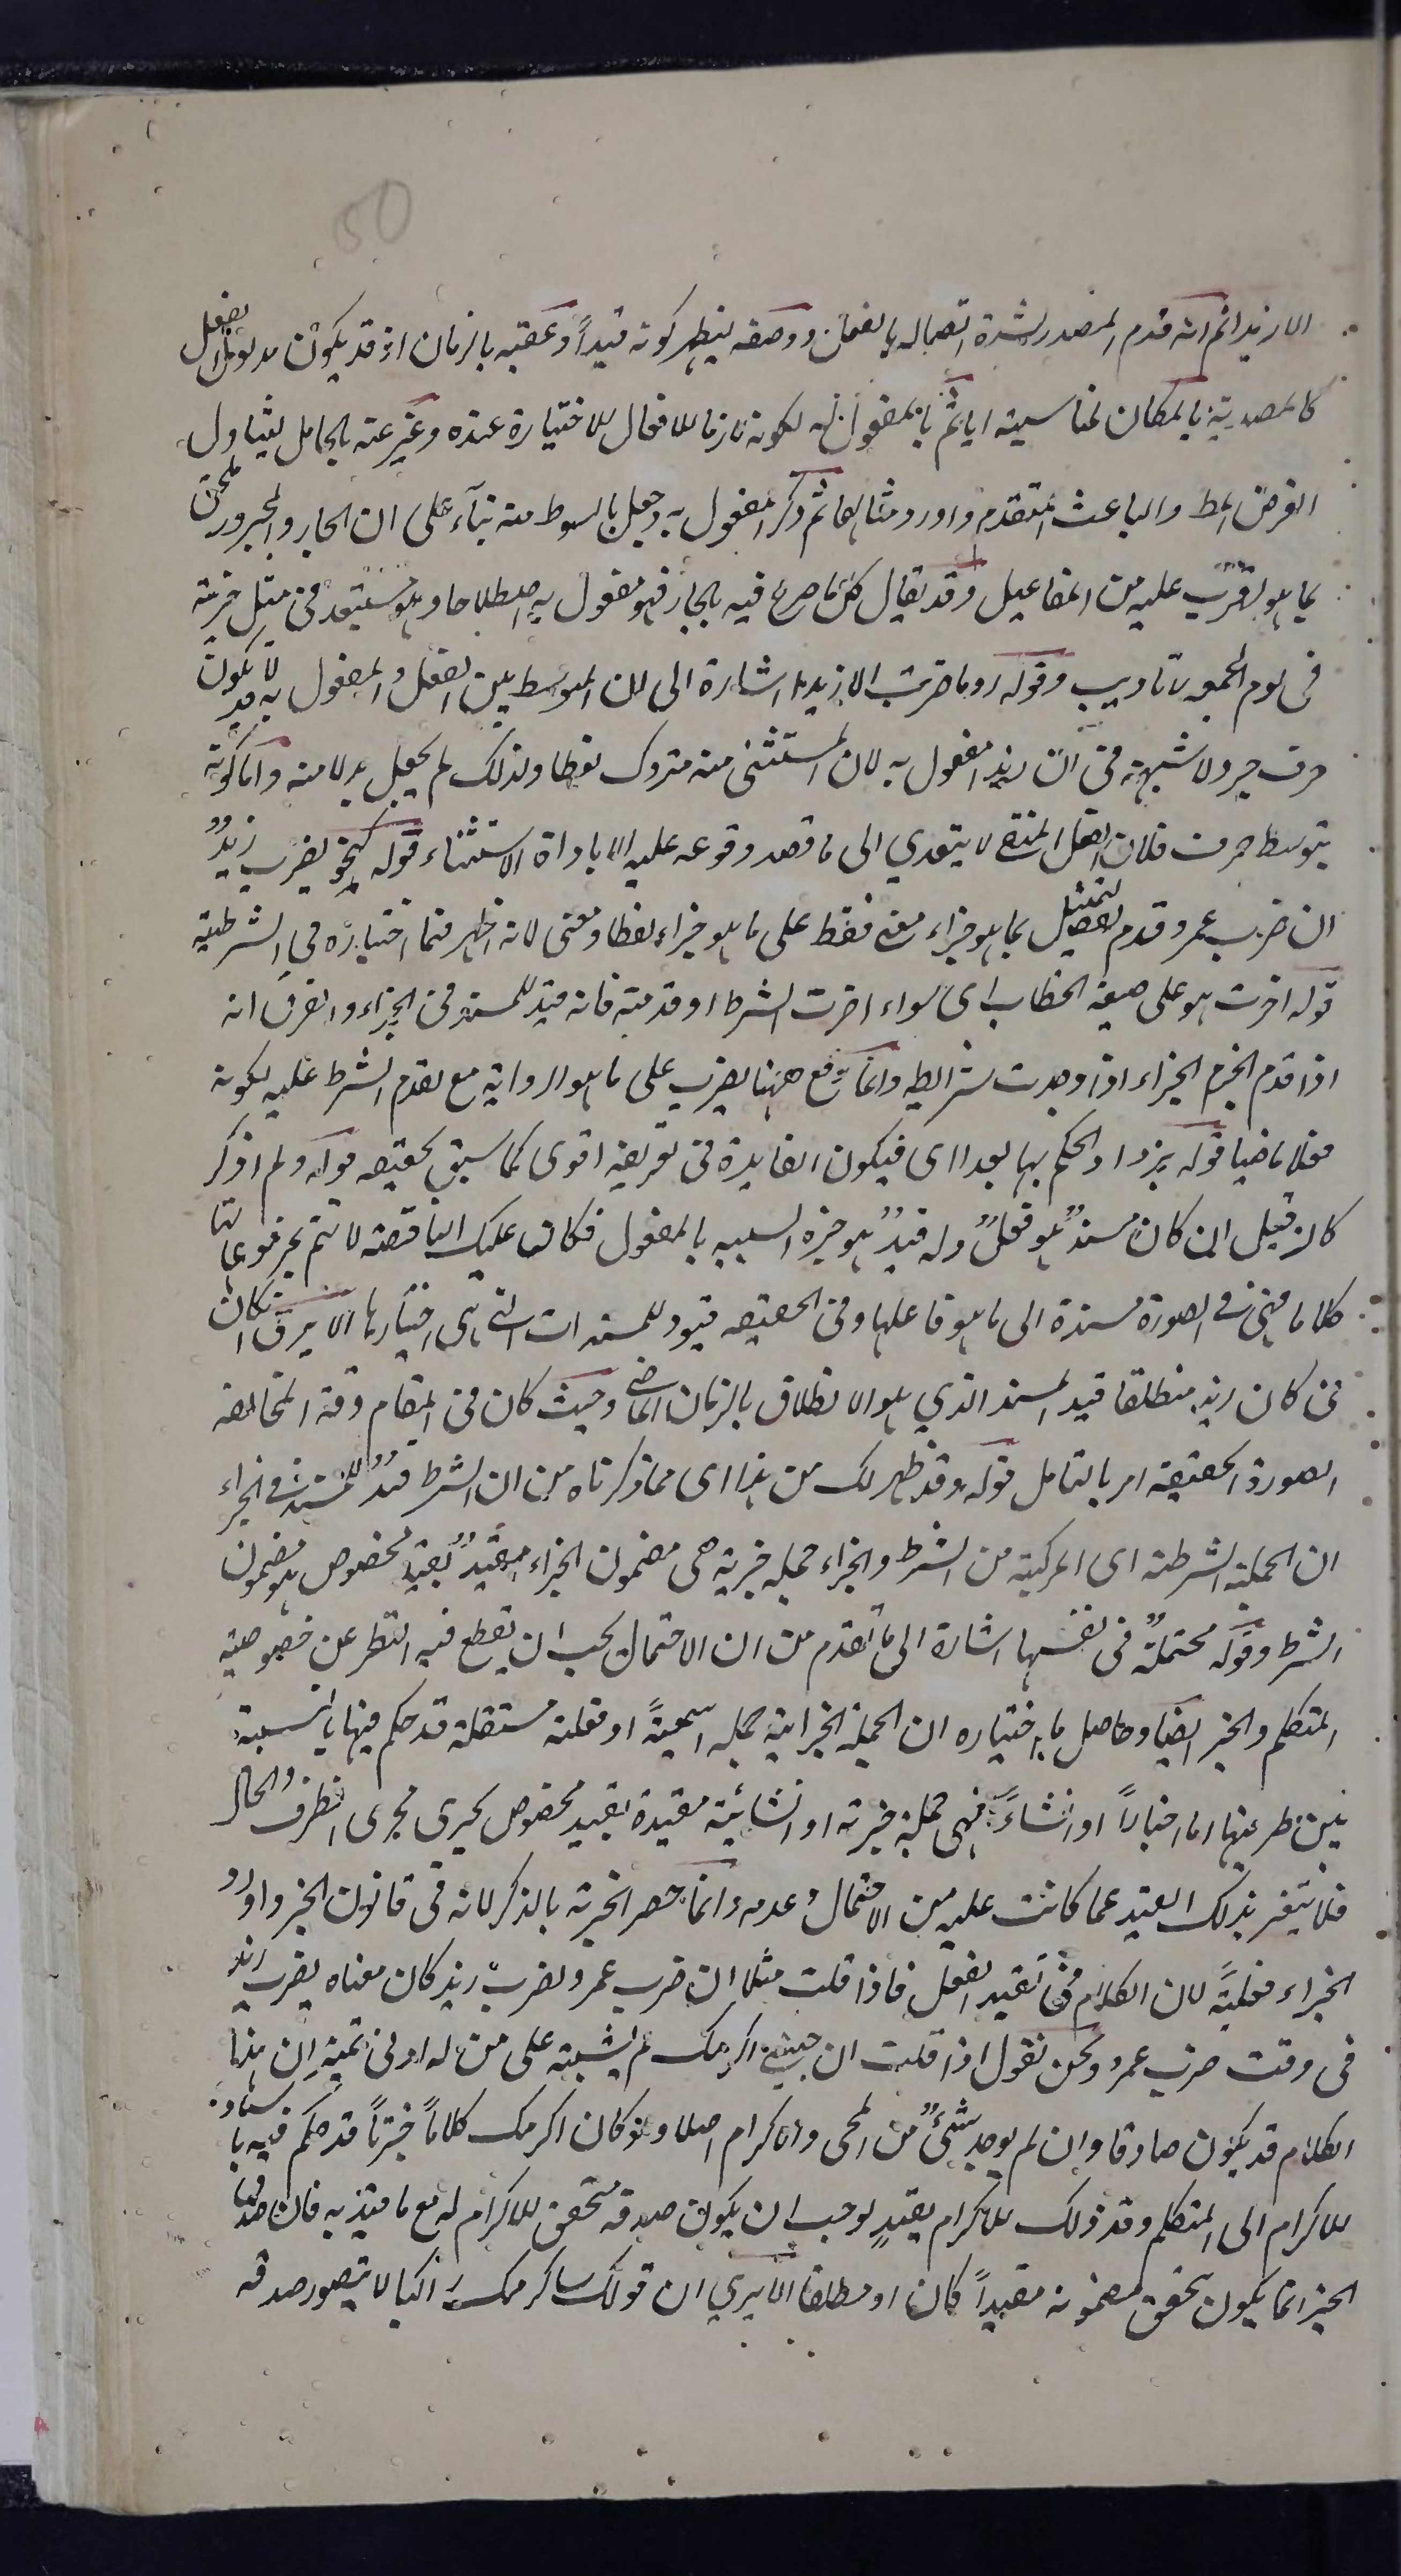 50
الا زيدا ثم انه قدم المصدر لشدة اتصاله بالفعل ووصفه ليظهر كونه قيداً وعقبه بالزمان اذ قد يكون مدلول الفعل
كالمصدرية بالمكان لمناسبته اياه ثم بالمفعول له لكونه لازما للافعال الاختيارة عنده وغير عنه بالحامل ليتناول
الغرض المط والباعث المتقدم واورد مثالهما ثم ذكر المفعول به وجعل بالسوط منه بناء على ان الجار والمجرور ملحق
بما هو لقرب عليه من المفاعيل وقد يقال كل ما صرح فيه بالجار فهو مفعول به اصطلاحا وهو مستبعد في مثل ضربته
في يوم الجمعه لتاديب وقوله وما ضربت الا زيدا اشارة الى ان المتوسط بين الفعل والمفعول به قد لا يكون
حرف جر ولا شبهة في ان زيدا مفعول به لان المستثنى منه متروك لفظا ولذلك لم يجعل بدلا منه واما كونه
بتوسط حرف فلان الفعل المنفي لا يتعدي الى ما قصد وقوعه عليه الا باداة الاستثناء قوله كنحو يضرب زيدٌ
ان ضرب عمرو قدم التمثيل بما هو جزاء معنى فقط على ما هو جزاء لفظا ومعنى لانه اظهر فيما اختياره في الشرطية
قوله اخرت هو على صيغة الخطاب اى سواء اخرت الشرط او قدمته فانه قيد للمسند في الجزاء والفرق انه
اذا قدم انجزم الجزاء اذا وجدت شرايطه وانما رفع ههنا يضرب على ما هو الرواية مع تقدم الشرط عليه لكونه
فعلا ماضيا قوله يزداد الحكم بها بعدا اى فيكون الفايدة في تعريفه اقوى كما سبق تحقيقه قوله ولم اذكر
كان قيل ان كان مسندٌ هو فعلٌ وله قيدٌ هو خبره الشبيه بالمفعول فكانت عليك الناقصة لا تتم بمرفوعاتها
كلاما فهي في الصورة مسندة الى ما هو فاعلها وفي الحقيقه قيود للمسندات التي هي اخبارها الا يرى ان كان
في كان زيد منطلقا قيد المسند الذي هو الانطلاق بالزمان الماضي وحيث كان في المقام دقة لمخالفة
الصورة الحقيقة امر بالتامل قوله وقد ظهر لك من هذا اى مما ذكرناه من ان الشرط قيد للمسند في الجزاء
ان الجملة الشرطية اى المركبة من الشرط والجزاء جمله خبرية هى مضمون الجزاء مقيدٌ بقيد مخصوص هو مضمون
الشرط وقوله محتملةٌ في نفسها اشارة الى ما تقدم من ان الاحتمال يجب ان يقطع فيه النظر عن خصوصية
المتكلم والخبر ايضا وحاصل ما اختياره ان الجملة الجزاىية جمله اسميةً او فعلية مستقلة قد حكم فيها بالنسبة
بين طرفيها اما اخباراً او انشاءً فهي جملة خبرية او انشائية مقيدة بقيد مخصوص يجرى مجرى الظرف والحال
فلا يتغير بذلك القيد عما كانت عليه من الاحتمال وعدمه وانما خصر الخبرية بالذكر لانه في قانون الخبر واورد
الجزاء فعليةً لان الكلام في تقييد الفعل فاذا قلت مثلا ان ضرب عمرو يضرب زيد كان معناه يضرب زيد
في وقت ضرب عمرو ونحن نقول اذا قلت ان جيتني اكرمك لم يشتبه على من له ادنى تمييز ان هذا
الكلام قد يكون صادقا وان لم يوجد شئٌ من المجى والاكرام اصلا ولو كان اكرمك كلاماً خبرياً قد حكم فيه باسناد
للاكرام الى المتكلم وقد ذلك للاكرام بقيدٍ لوجب ان يكون صدقه متحقق للاكرام له مع ما قيد به فان صدق
الخبر انما يكون بتحقق مضمونه مقيداً كان او مطلقا الا يرى ان قولك ساكرمك راكبا لا يتصور صدقه